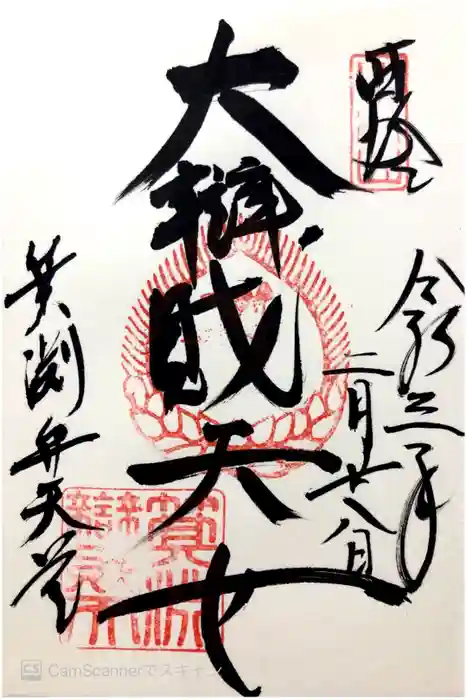 奉拝
令和三年
二月廿八日
大辨財天女
箕渕弁天堂
CamScannerでスキャン